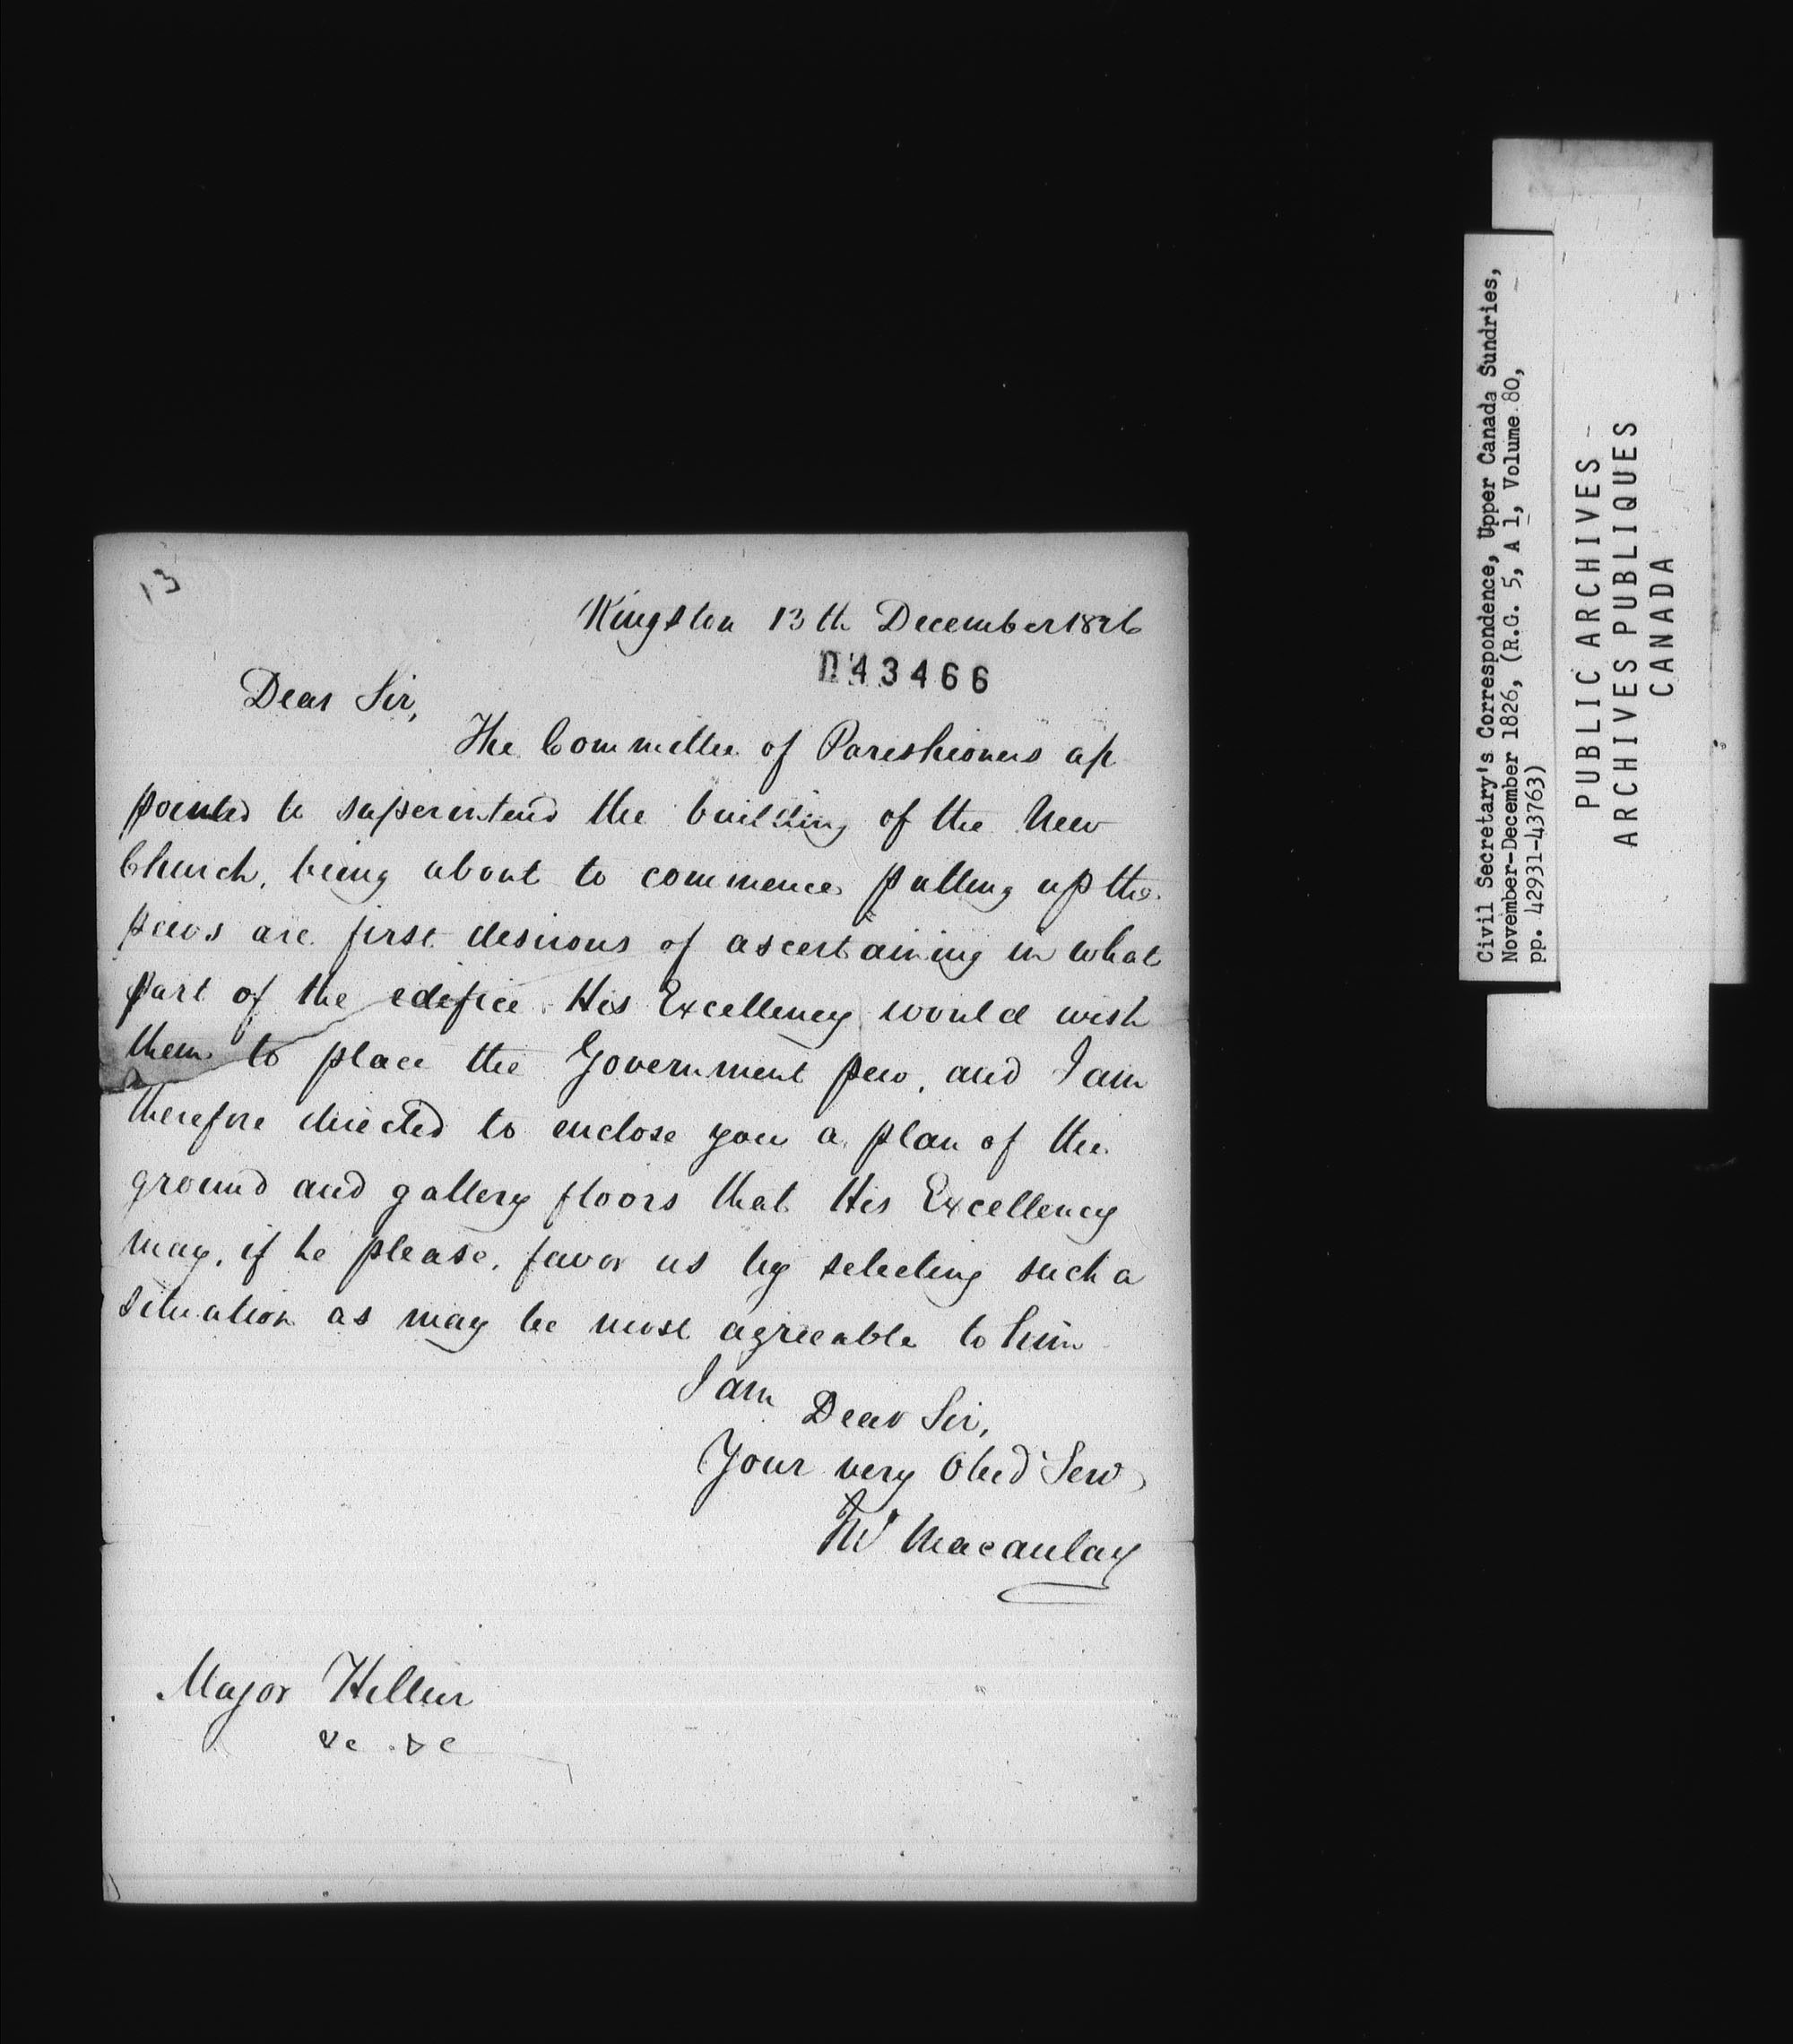 13
Kingston 13th December 1826
043466
Dear Sir,
The Committee of Parishioners ap
pointed to superintend the building of the New
Church, being about to commence putting up the
pews are first desirous of ascertaining in what
part of the edifice His Excellency would wish
them to place the Government pew, and I am
therefore directed to enclose you a plan of the
ground and gallery floors that His Excellency
may, if he please, favor us by selecting such a
situation as may be most agreeable to him
I am
Dear Sir,
Your very Obed Serv
Macaulay
Major Hillier
&c &c
Civil Secretary's Correspondence, Upper Canada Sundries,
November-December 1826, (R.G. 5, A 1, Volume 80,
pp. 42931-43763)
PUBLIC ARCHIVES
ARCHIVES PUBLIQUES
CANADA